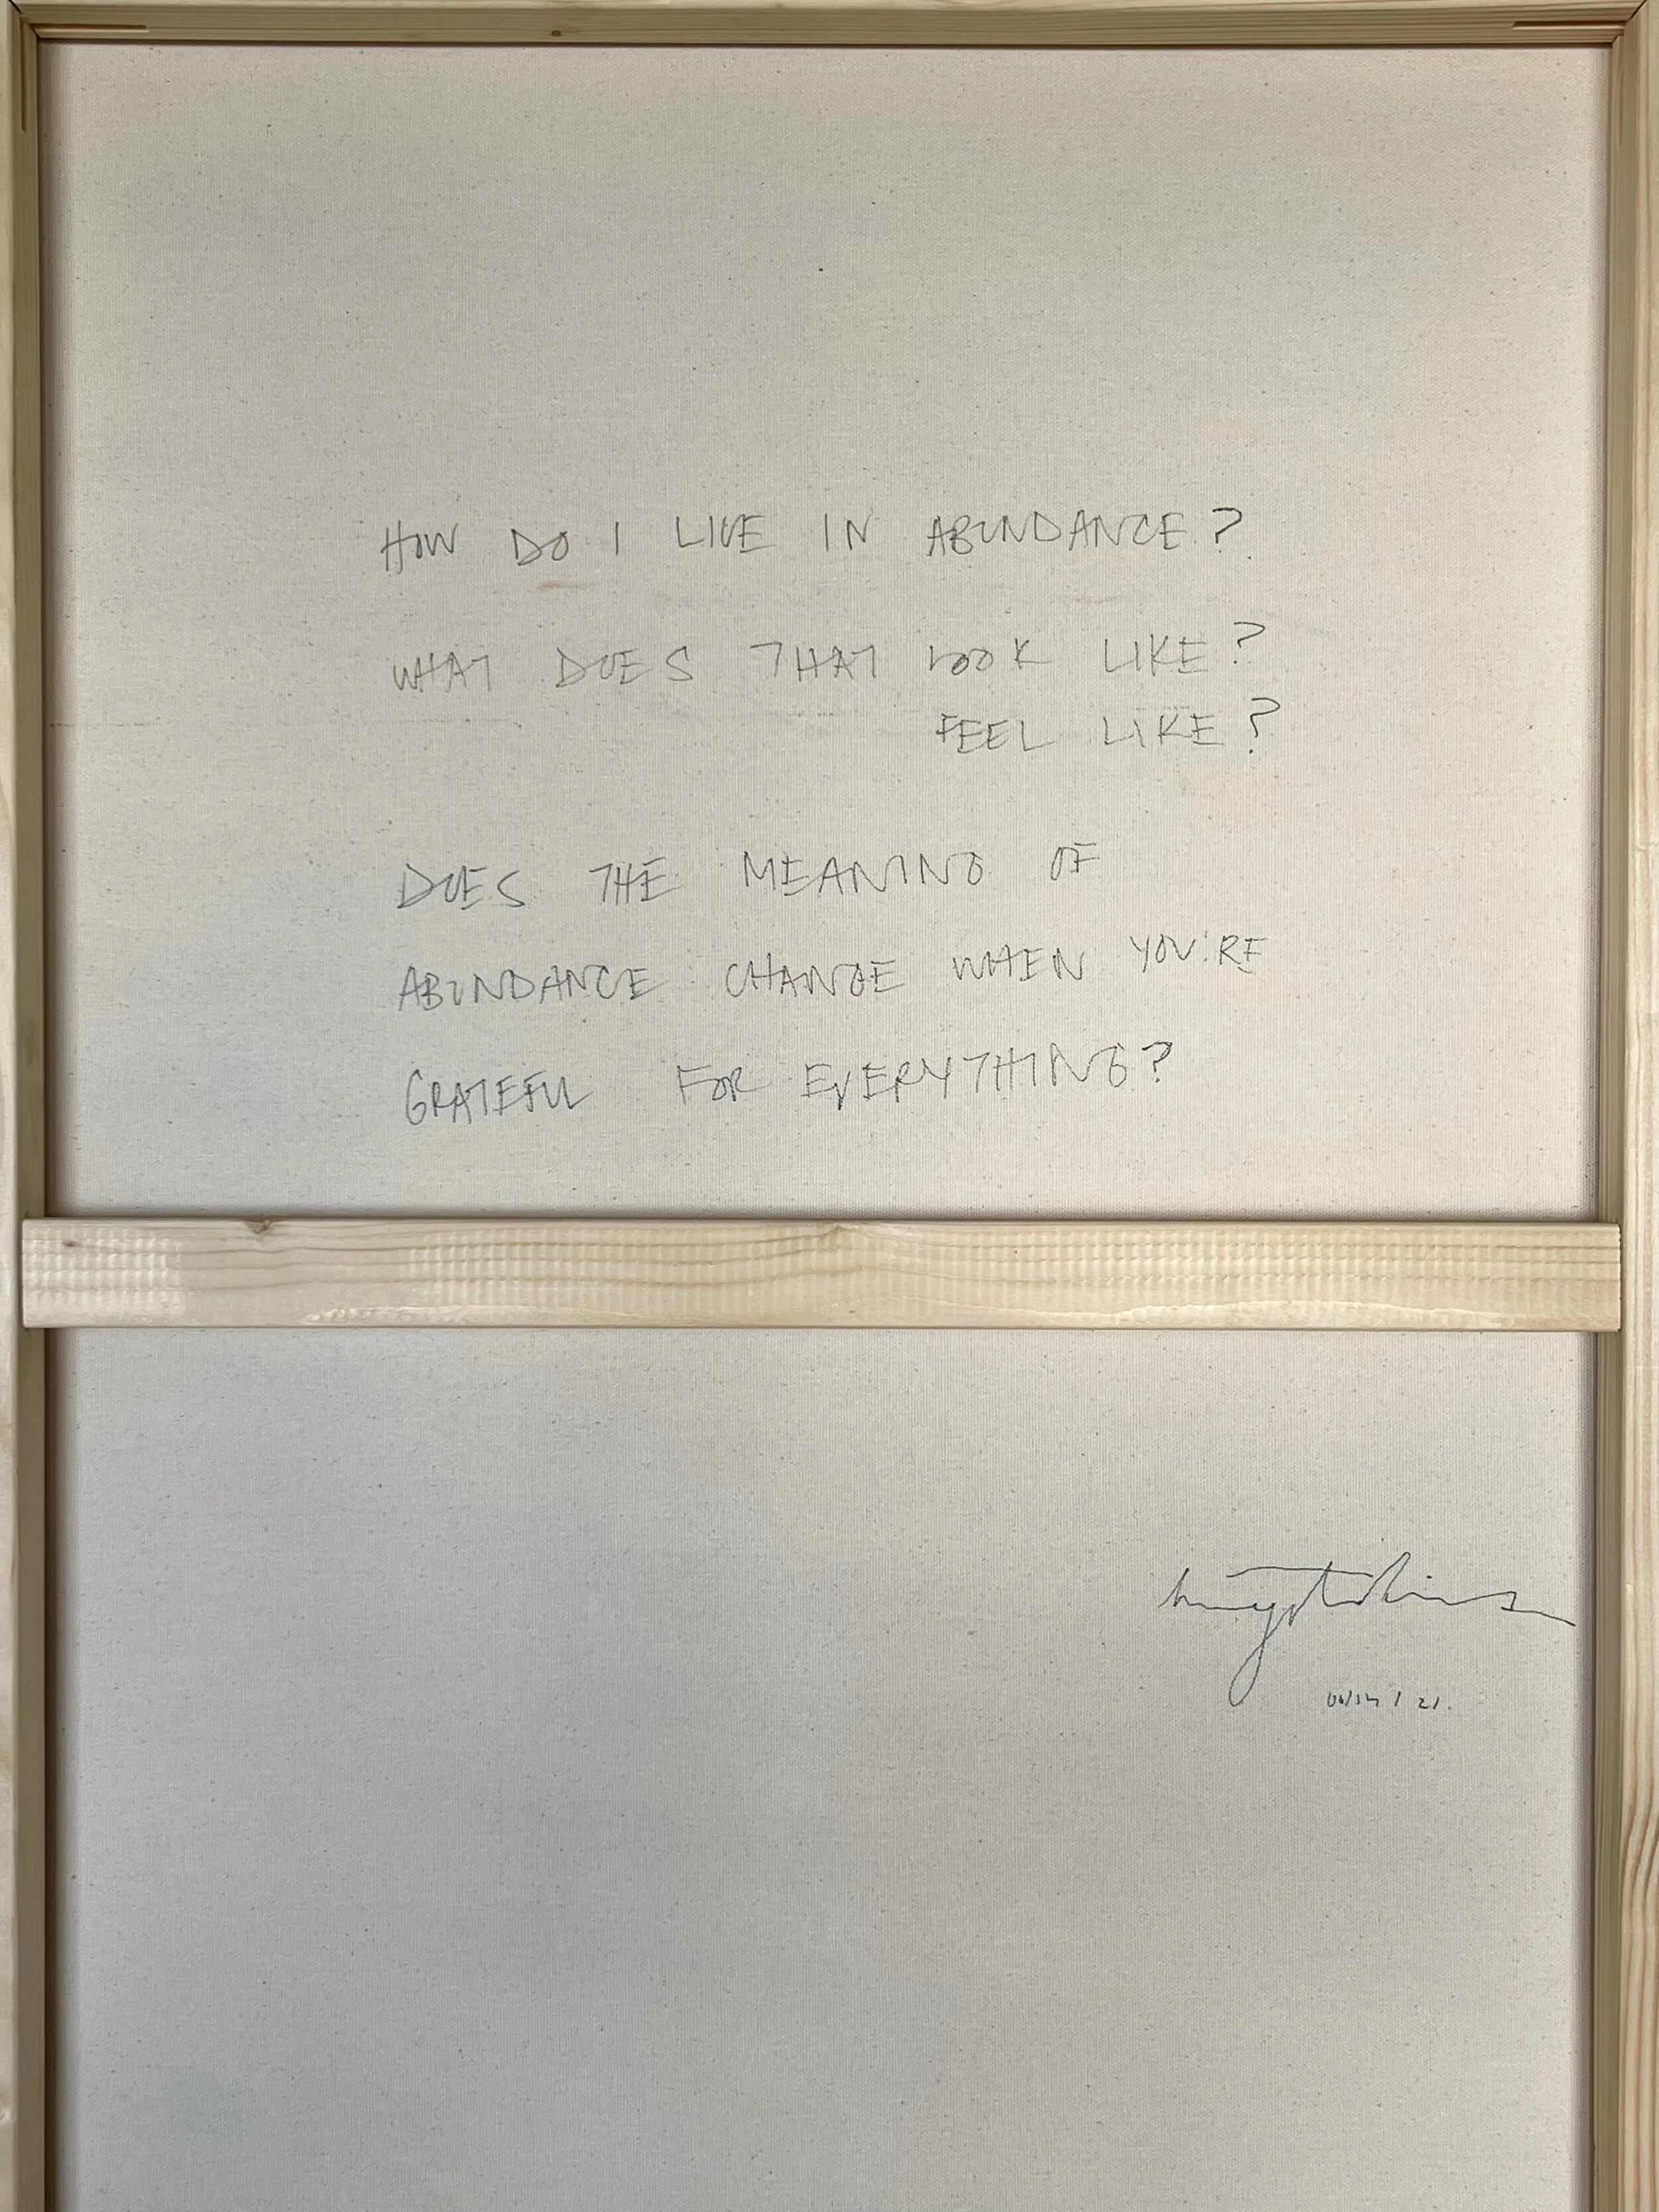 HOW DO I LIVE IN ABUNDANCE?
WHAT DOES THAT LOOK LIKE?
FEEL LIKE?
DOES THE MEANING OF
ABUNDANCE CHANGE WHEN YOU'RE
GRATEFUL FOR EVERYTHING?